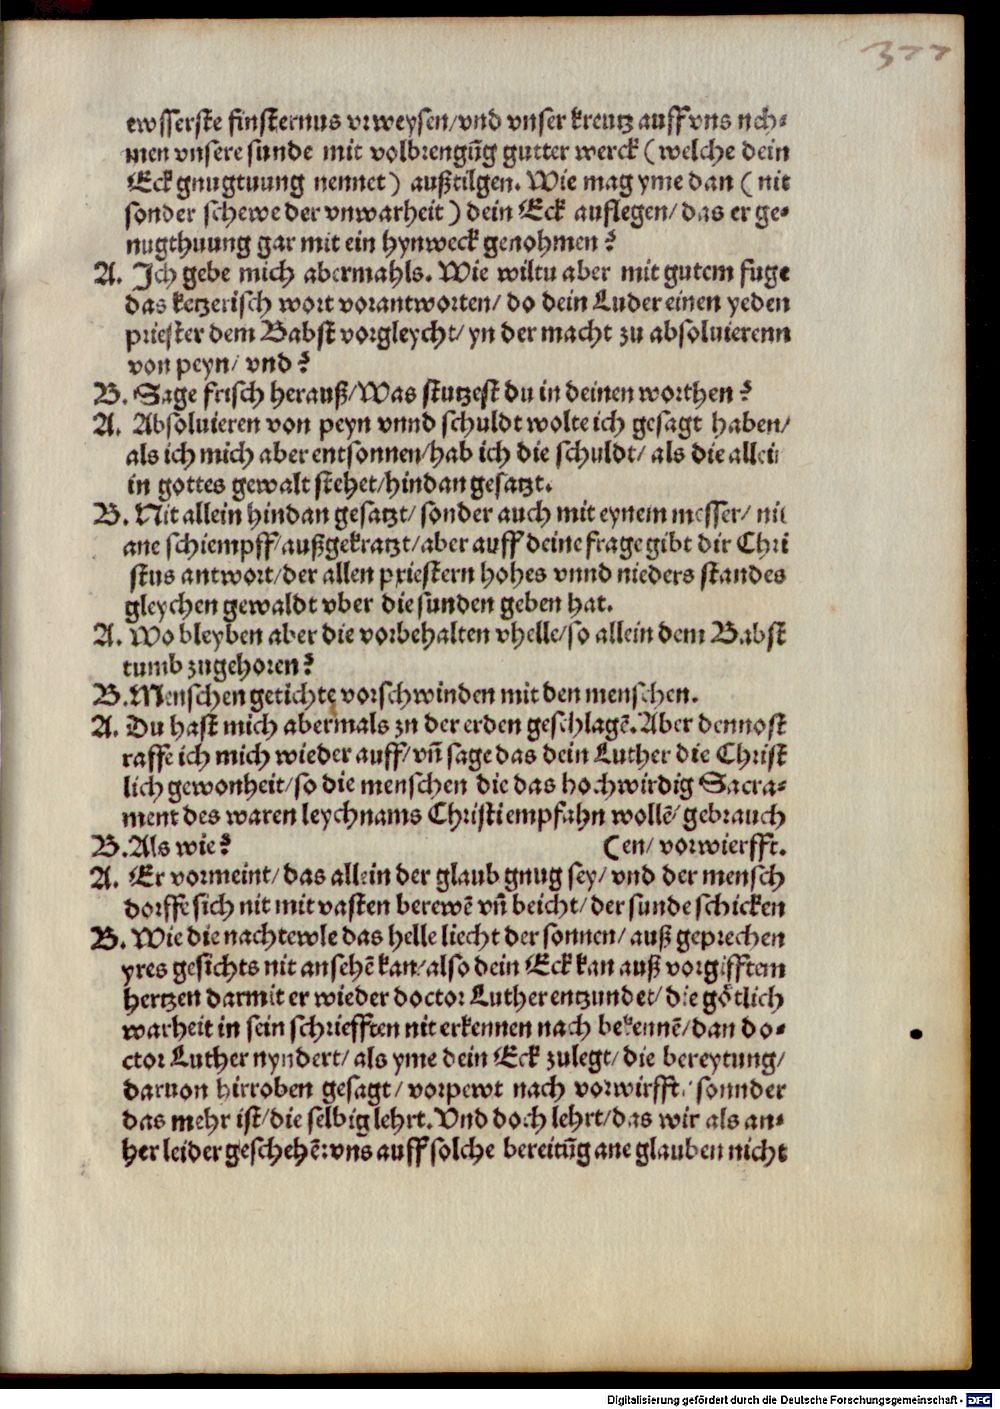 377
ewsserste finsternus vrweysen/vnd vnser kreutz auff vns neh⸗
men vnsere sunde mit volbrengūg gutter werck (welche dein
Eck gnugtuung nennet) außtilgen. Wie mag yme dan (nit
sonder schewe der vnwarheit) dein Eck auflegen/ das er ge⸗
nugthuung gar mit ein hynweck genohmen?
A. Ich gebe mich abermahls. Wie wiltu aber mit gutem fuge
das ketzerisch wort vorantworten/ do dein Luder einen yeden
priester dem Babst vorgleycht/ yn der macht zu absoluierenn
von peyn/ vnd?
B. Sage frisch herauß/Was stutzest du in deinen worthen?
A. Absoluieren von peyn vnnd schuldt wolte ich gesagt haben/
als ich mich aber entsonnen/hab ich die schuldt/ als die allein
in gottes gewalt stehet/hindan gesatzt.
B. Nit allein hindan gesatzt/ sonder auch mit eynem messer/ nit
ane schiempff/außgekratzt/aber auff deine frage gibt dir Chri
stus antwort/der allen priestern hohes vnnd nieders standes
gleychen gewaldt vber die sunden geben hat.
A. Wo bleyben aber die vorbehalten vhelle/so allein dem Babst
tumb zugehoren?
B. Menschen getichte vorschwinden mit den menschen.
A. Du hast mich abermals zu der erden geschlagē. Aber dennost
raffe ich mich wieder auff/vn̄ sage das dein Luther die Christ
lich gewonheit/so die menschen die das hochwirdig Sacra⸗
ment des waren leychnams Christi empfahn wollē/ gebrauch
B. Als wie? (en/ vorwierfft.
A. Er vormeint/das allein der glaub gnug sey/ vnd der mensch
dorffe sich nit mit vasten berewē vn̄ beicht/der sunde schicken
B. Wie die nachtewle das helle liecht der sonnen/ auß geprechen
yres gesichts nit ansehē kan/also dein Eck kan auß vorgifftem
hertzen darmit er wieder doctor Luther entzundet/ die götlich
warheit in sein schriefften nit erkennen nach bekennē/dan do⸗
ctor Luther nyndert/ als yme dein Eck zulegt/ die bereytung/
daruon hirroben gesagt/ vorpewt nach vorwirfft/ sonnder
das mehr ist/die selbig lehrt. Vnd doch lehrt/das wir als an⸗
her leider geschehē:vns auff solche bereitūg ane glauben nicht
Digitalisierung gefördert durch die Deutsche Forschungsgemeinschaft - DFG